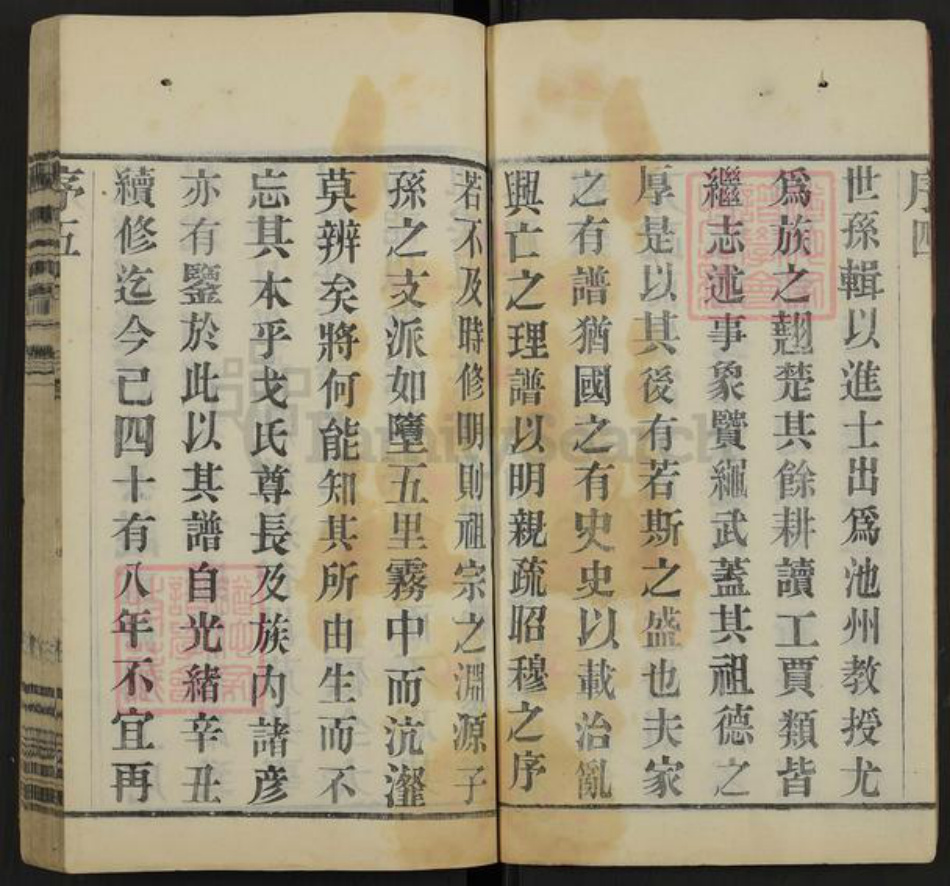 序四
世孫輯以進士出爲池州教授尤
爲族之翹楚其餘耕讀工賈類皆
繼志述事象賢繩武蓋其祖德之
厚是以其後有若斯之盛也夫家
之有譜猶國之有史史以載治亂
興亡之理譜以明親疏昭穆之序
若不及時修明則祖宗之淵源子
孫之支派如墮五里霧中而沆瀣
莫辨矣將何能知其所由生而不
忘其本乎戈氏尊長及族内諸彦
亦有鑒於此以其譜自光緒辛丑
續修迄今已四十有八年不宜再
序五
FamilySearch